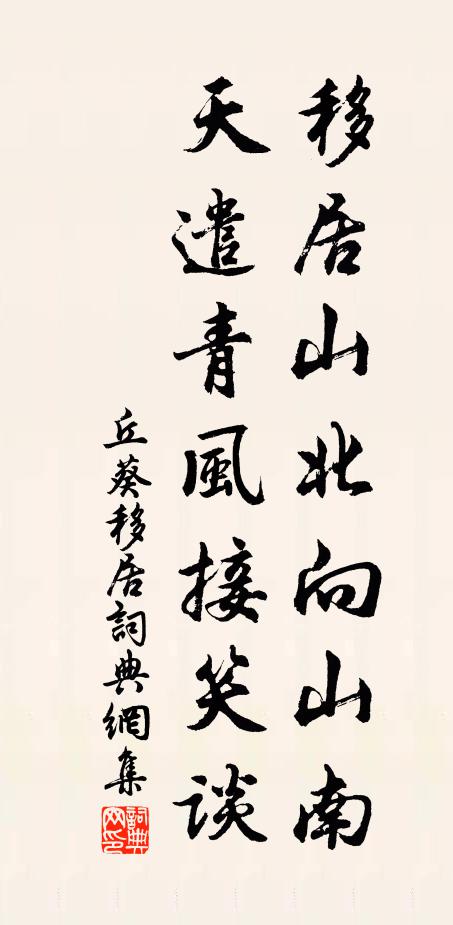 移居山北向山南
天遣青風接笑談
丘葵移居詞典網集
詞典網印